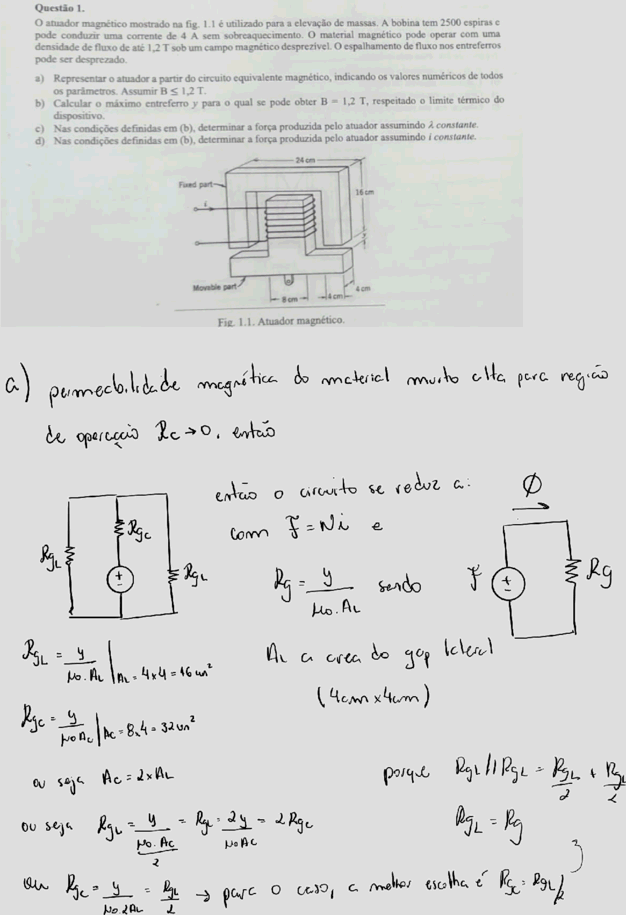 Questão 1.
O atuador magnético mostrado na fig. 1.1 é utilizado para a elevação de massas. A bobina tem 2500 espiras e
pode conduzir uma corrente de 4 A sem sobreaquecimento. O material magnético pode operar com uma
densidade de fluxo de até 1,2 T sob um campo magnético desprezível. O espalhamento de fluxo nos entreferros
pode ser desprezado.
a) Representar o atuador a partir do circuito equivalente magnético, indicando os valores numéricos de todos
os parâmetros. Assumir B ≤ 1,2 T.
b) Calcular o máximo entreferro y para o qual se pode obter B = 1,2 T, respeitado o limite térmico do
dispositivo.
c) Nas condições definidas em (b), determinar a força produzida pelo atuador assumindo λ constante.
d) Nas condições definidas em (b), determinar a força produzida pelo atuador assumindo i constante.
24 cm
Fixed part
16 cm
i
Movable part
8 cm
4 cm
4 cm
Fig. 1.1. Atuador magnético.
a) permeabilidade magnética do material muito alta para região
de operação Rc → 0, então
então o circuito se reduz a:
com F = Ni e
Φ
RgL
Rgc
RgL
Rg = y / μo.AL sendo
F
Rg
RgL = y / μo.AL | AL = 4x4 = 16 cm²
AL a area do gap lateral
(4cm x 4cm)
Rgc = y / μo Ac | Ac = 8.4 = 32 cm²
ou seja Ac = 2 x AL
porque RgL // RgL = RgL/2 + RgL/2
ou seja RgL = y / (μo.Ac/2) = RgL = 2y / μo Ac = 2 Rgc
RgL = Rg
ou Rgc = y / μo 2AL = RgL/2 → para o caso, a melhor escolha é Rgc = RgL/2